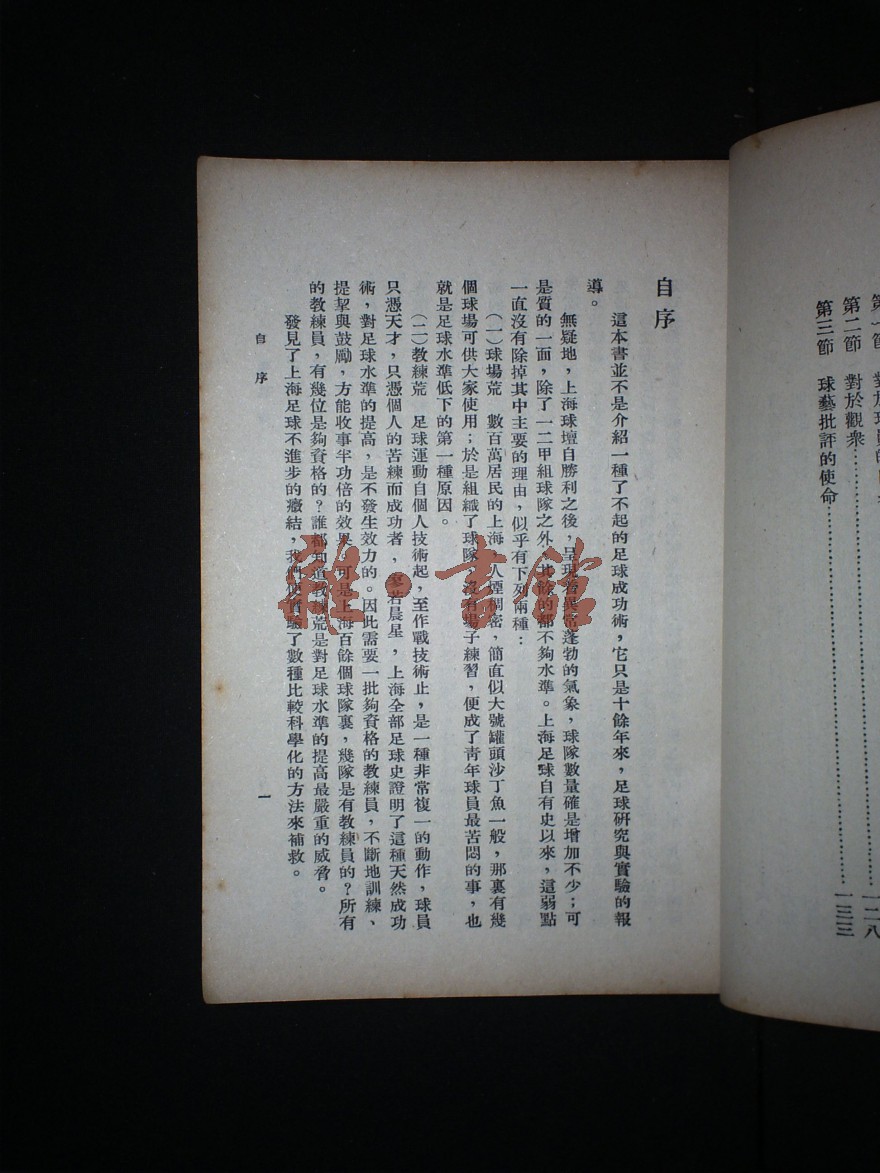 第二節　對於觀衆……一二八
第三節　球藝批評的使命……一三三
自序
這本書並不是介紹一種了不起的足球成功術，它只是十餘年來，足球研究與實驗的報
導。
無疑地，上海球壇自勝利之後，呈現着異常蓬勃的氣象，球隊數量確是增加不少；可
是質的一面，除了一二甲組球隊之外，其餘的都不夠水準。上海足球自有史以來，這弱點
一直沒有除掉其中主要的理由，似乎有下列兩種：
（一）球場荒　數百萬居民的上海，人煙稠密，簡直似大號罐頭沙丁魚一般，那裏有幾
個球場可供大家使用；於是組織了球隊，沒有場子練習，便成了靑年球員最苦悶的事，也
就是足球水準低下的第一種原因。
（二）教練荒　足球運動自個人技術起，至作戰技術止，是一種非常複一的動作，球員
只憑天才，只憑個人的苦練而成功者，寥若晨星，上海全部足球史證明了這種天然成功
術，對足球水準的提高，是不發生效力的。因此需要一批夠資格的教練員，不斷地訓練、
提挈與鼓勵，方能收事半功倍的效果。可是上海百餘個球隊裏，幾隊是有教練員的？所有
的教練員，有幾位是夠資格的？誰都知道教練荒是對足球水準的提高最嚴重的威脅。
發見了上海足球不進步的癥結，我們便實驗了數種比較科學化的方法來補救。
自序
一
雅·書館